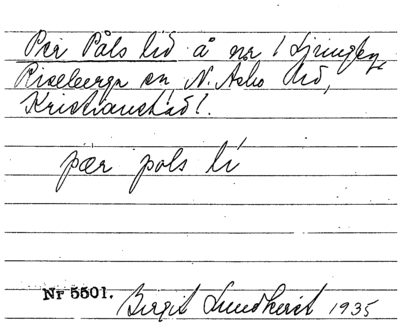 Per Påls lid å nr 1 Ljungby,
Riseberga sn N. Åsbo hd,
Kristianstad l.
pær pols li
Nr 5501. Birgit Lundkvist 1935